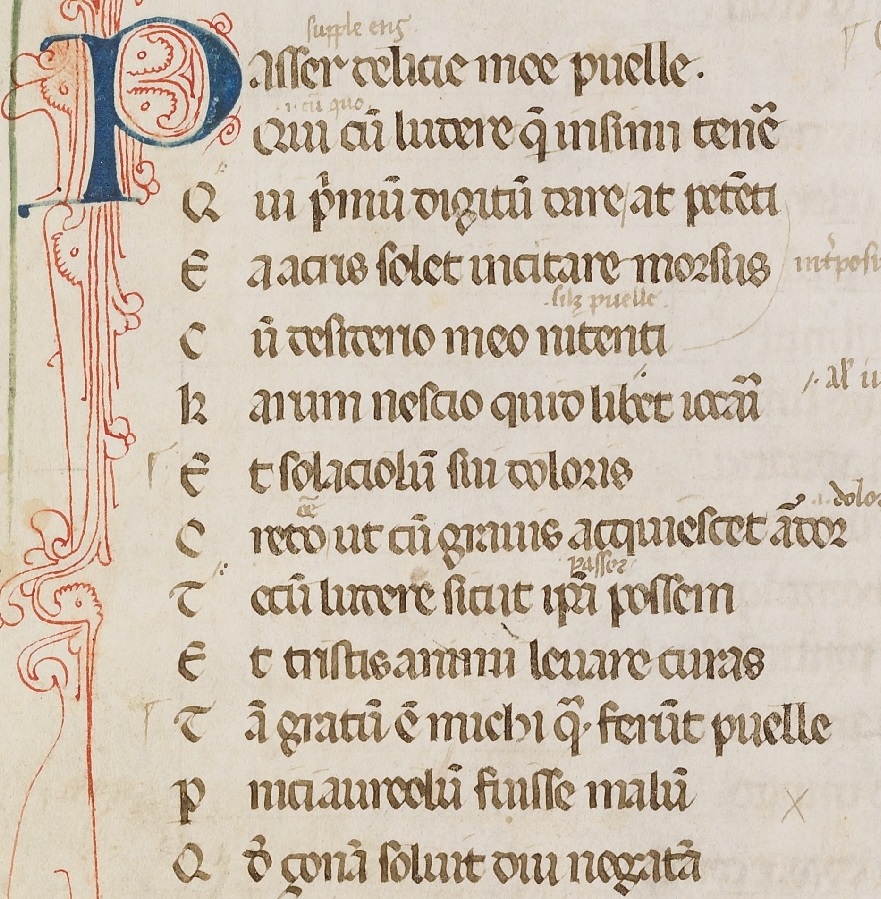 supple etiam
Passer delicie mee puelle.
.i. cū quo
Qui cū ludere q̄ insinu tenē
Qui p̄mū digitū dare at petēti
Ea acris solet incitare morsus
.silꝫ puelle.
Cū desiderio meo nitenti
Karum nescio quid libet iocari
Et solaciolū sui doloris
Credo ut cū grauis acquiescet ādor
passer
Tecū ludere sicut ip̄a possem
Et tristis animi leuare curas
Tā gratū ē michi q̄ ferūt puelle
Pernici aureolū fuisse malū
Qd̄ çonā soluit diu negatā